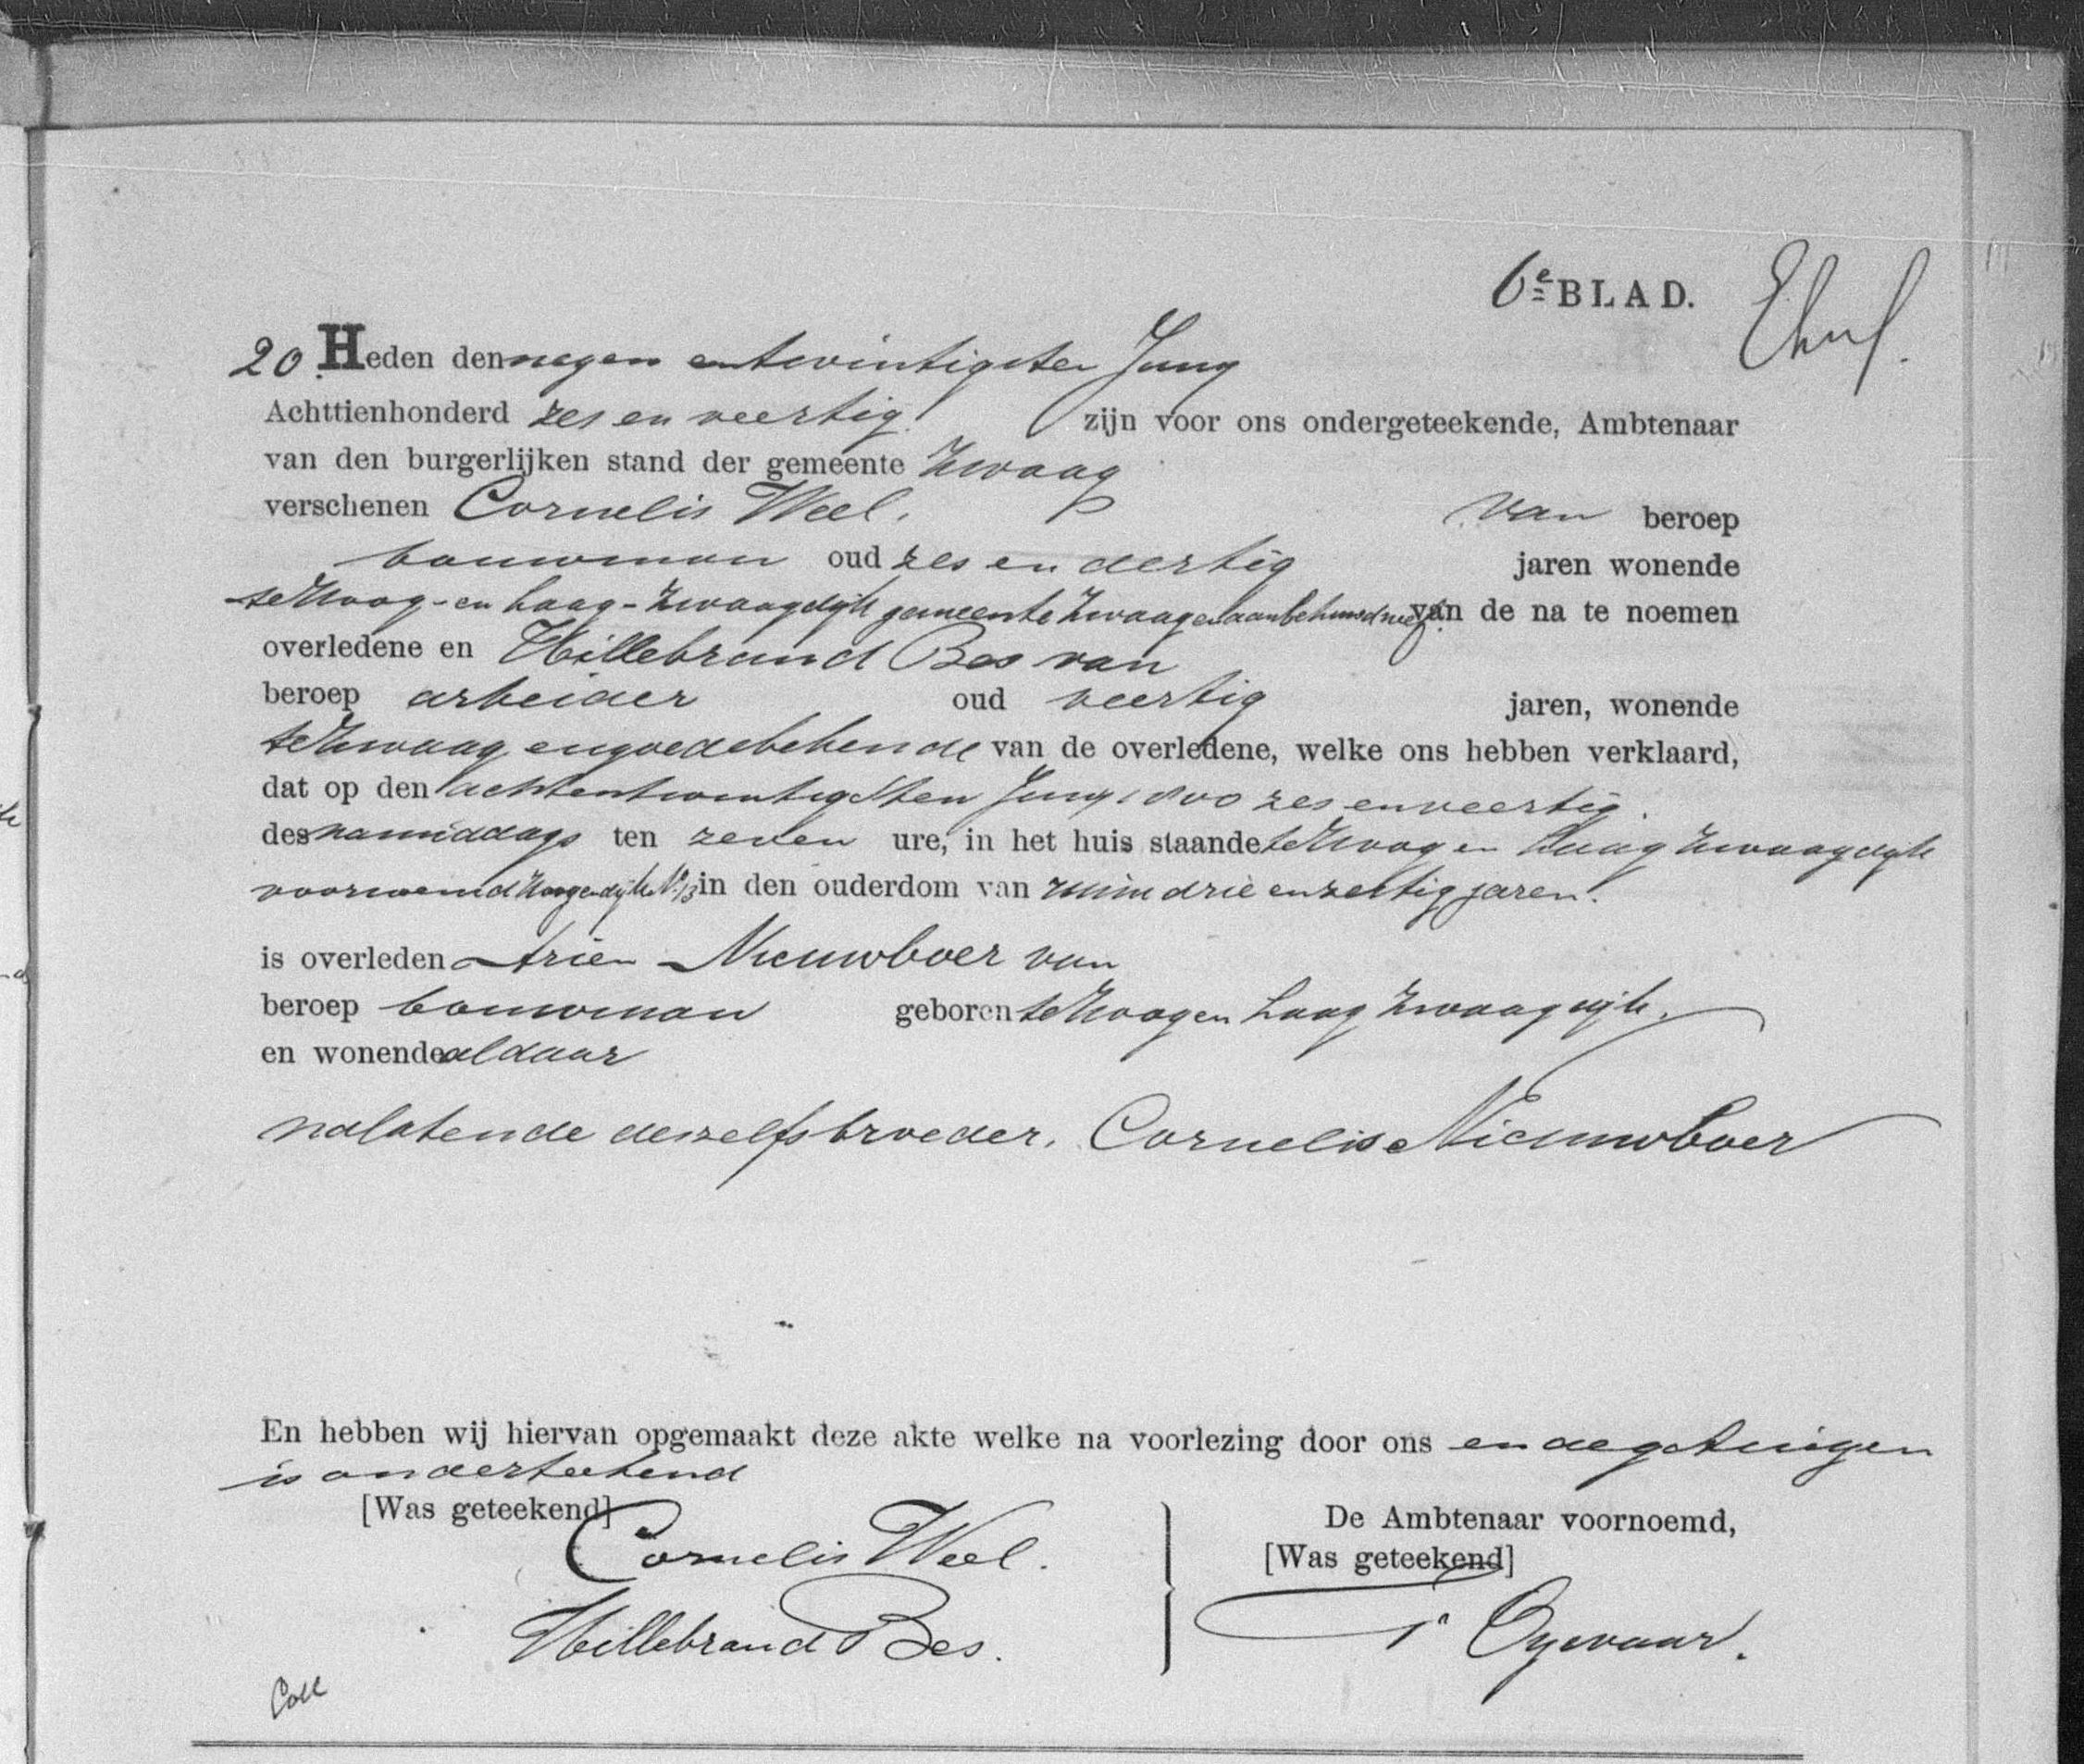 6e BLAD.
20 Heden den negen entwintigsten Juny
Achttienhonderd zes en veertig zijn voor ons ondergeteekende, Ambtenaar
van den burgerlijken stand der gemeente Zwaag
verschenen Cornelis Weel. van beroep
bouwman oud zes en dertig jaren wonende
te Hoog- en Laag-Zwaagdijk gemeente Zwaag en aanbehuwd neef van de na te noemen
overledene en Hillebrand Bes van
beroep arbeider oud veertig jaren, wonende
te Zwaag en goede bekende van de overledene, welke ons hebben verklaard,
dat op den achtentwintigsten Juny 1800 zes en veertig.
des namiddags ten zeven ure, in het huis staande te Hoog en Laag Zwaagdijk
voornoemd No. 13 in den ouderdom van ruim drie en zestig jaren.
is overleden Arien Nieuwboer van
beroep bouwman geboren te Hoog en Laag Zwaagdijk.
en wonende aldaar
nalatende deszelfs broeder. Cornelis Nieuwboer
En hebben wij hiervan opgemaakt deze akte welke na voorlezing door ons en de getuigen
is onderteekend
[Was geteekend] De Ambtenaar voornoemd,
Cornelis Weel. [Was geteekend]
Hillebrand Bes.
Coll